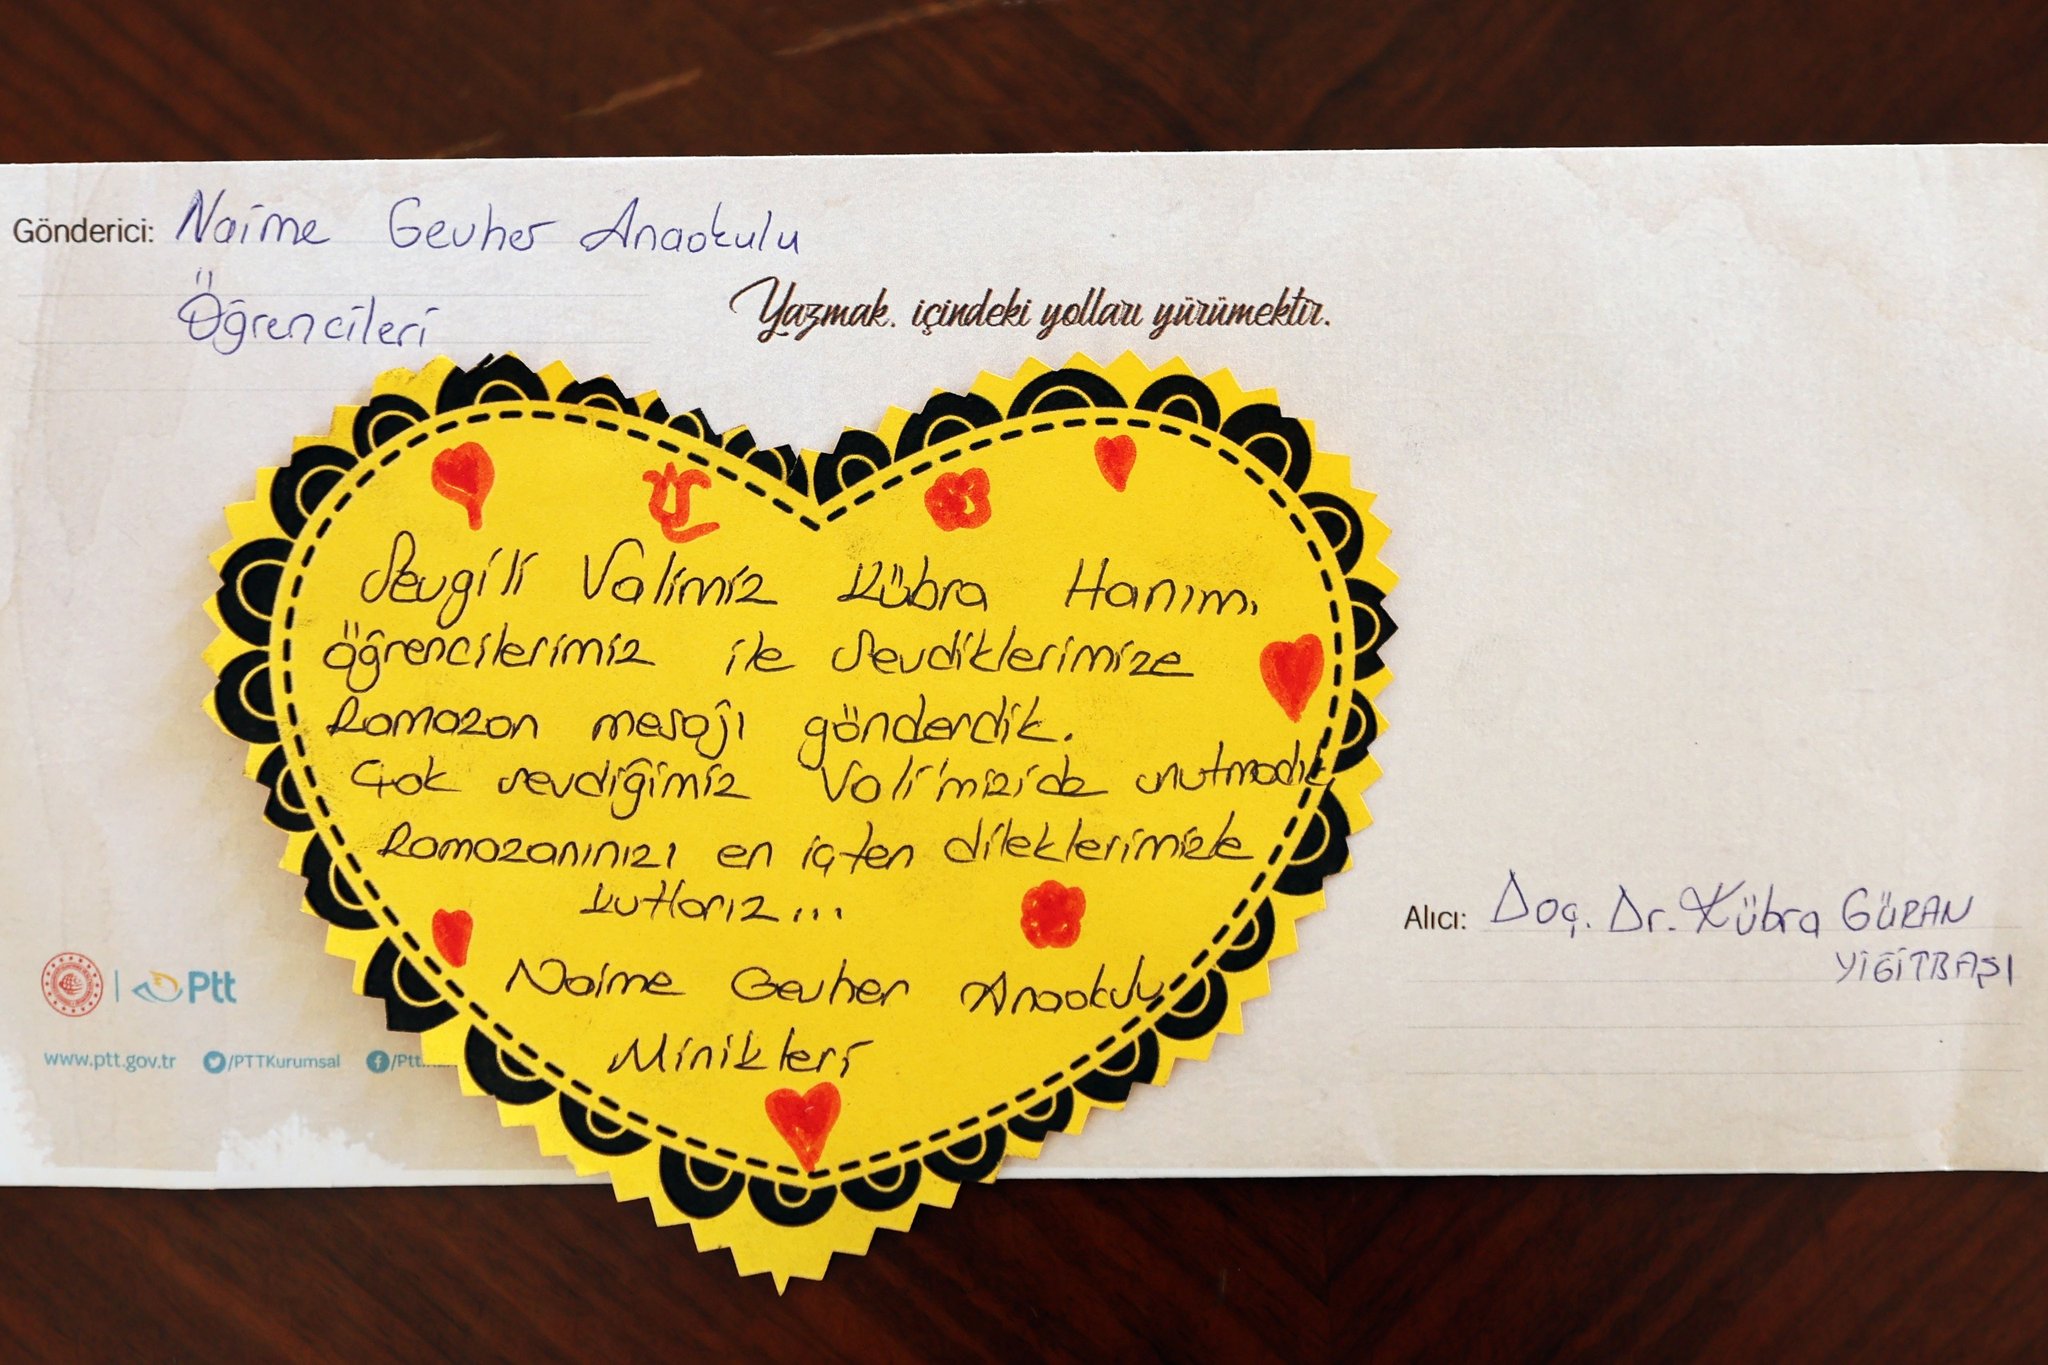 Gönderici: Naime Gevher Anaokulu
Öğrencileri
Yazmak. içindeki yolları yürümektir.
Sevgili Valimiz Kübra Hanım,
öğrencilerimiz ile sevdiklerimize
Ramazan mesajı gönderdik.
Çok sevdiğimiz Vali'mizide unutmadık
Ramazanınızı en içten dileklerimizle
kutlarız...
Naime Gevher Anaokulu
Minikleri
Alıcı: Doç. Dr. Kübra GÜRAN
YİĞİTBAŞI
Ptt
www.ptt.gov.tr /PTTKurumsal